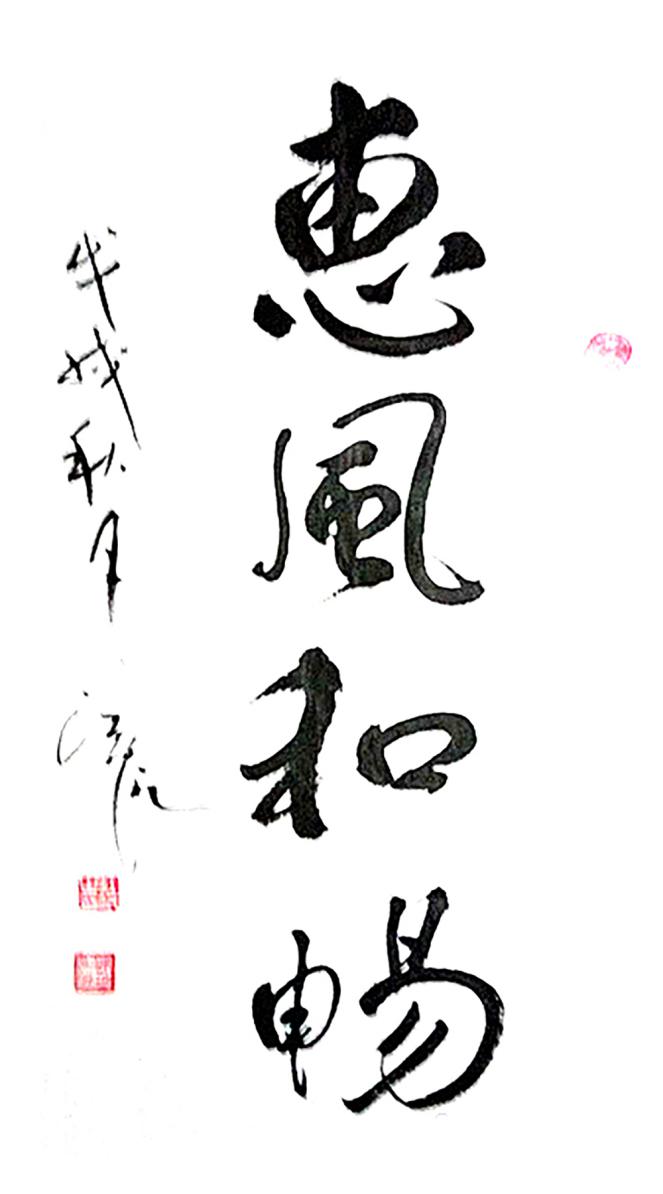 惠風和暢
戊戌秋月